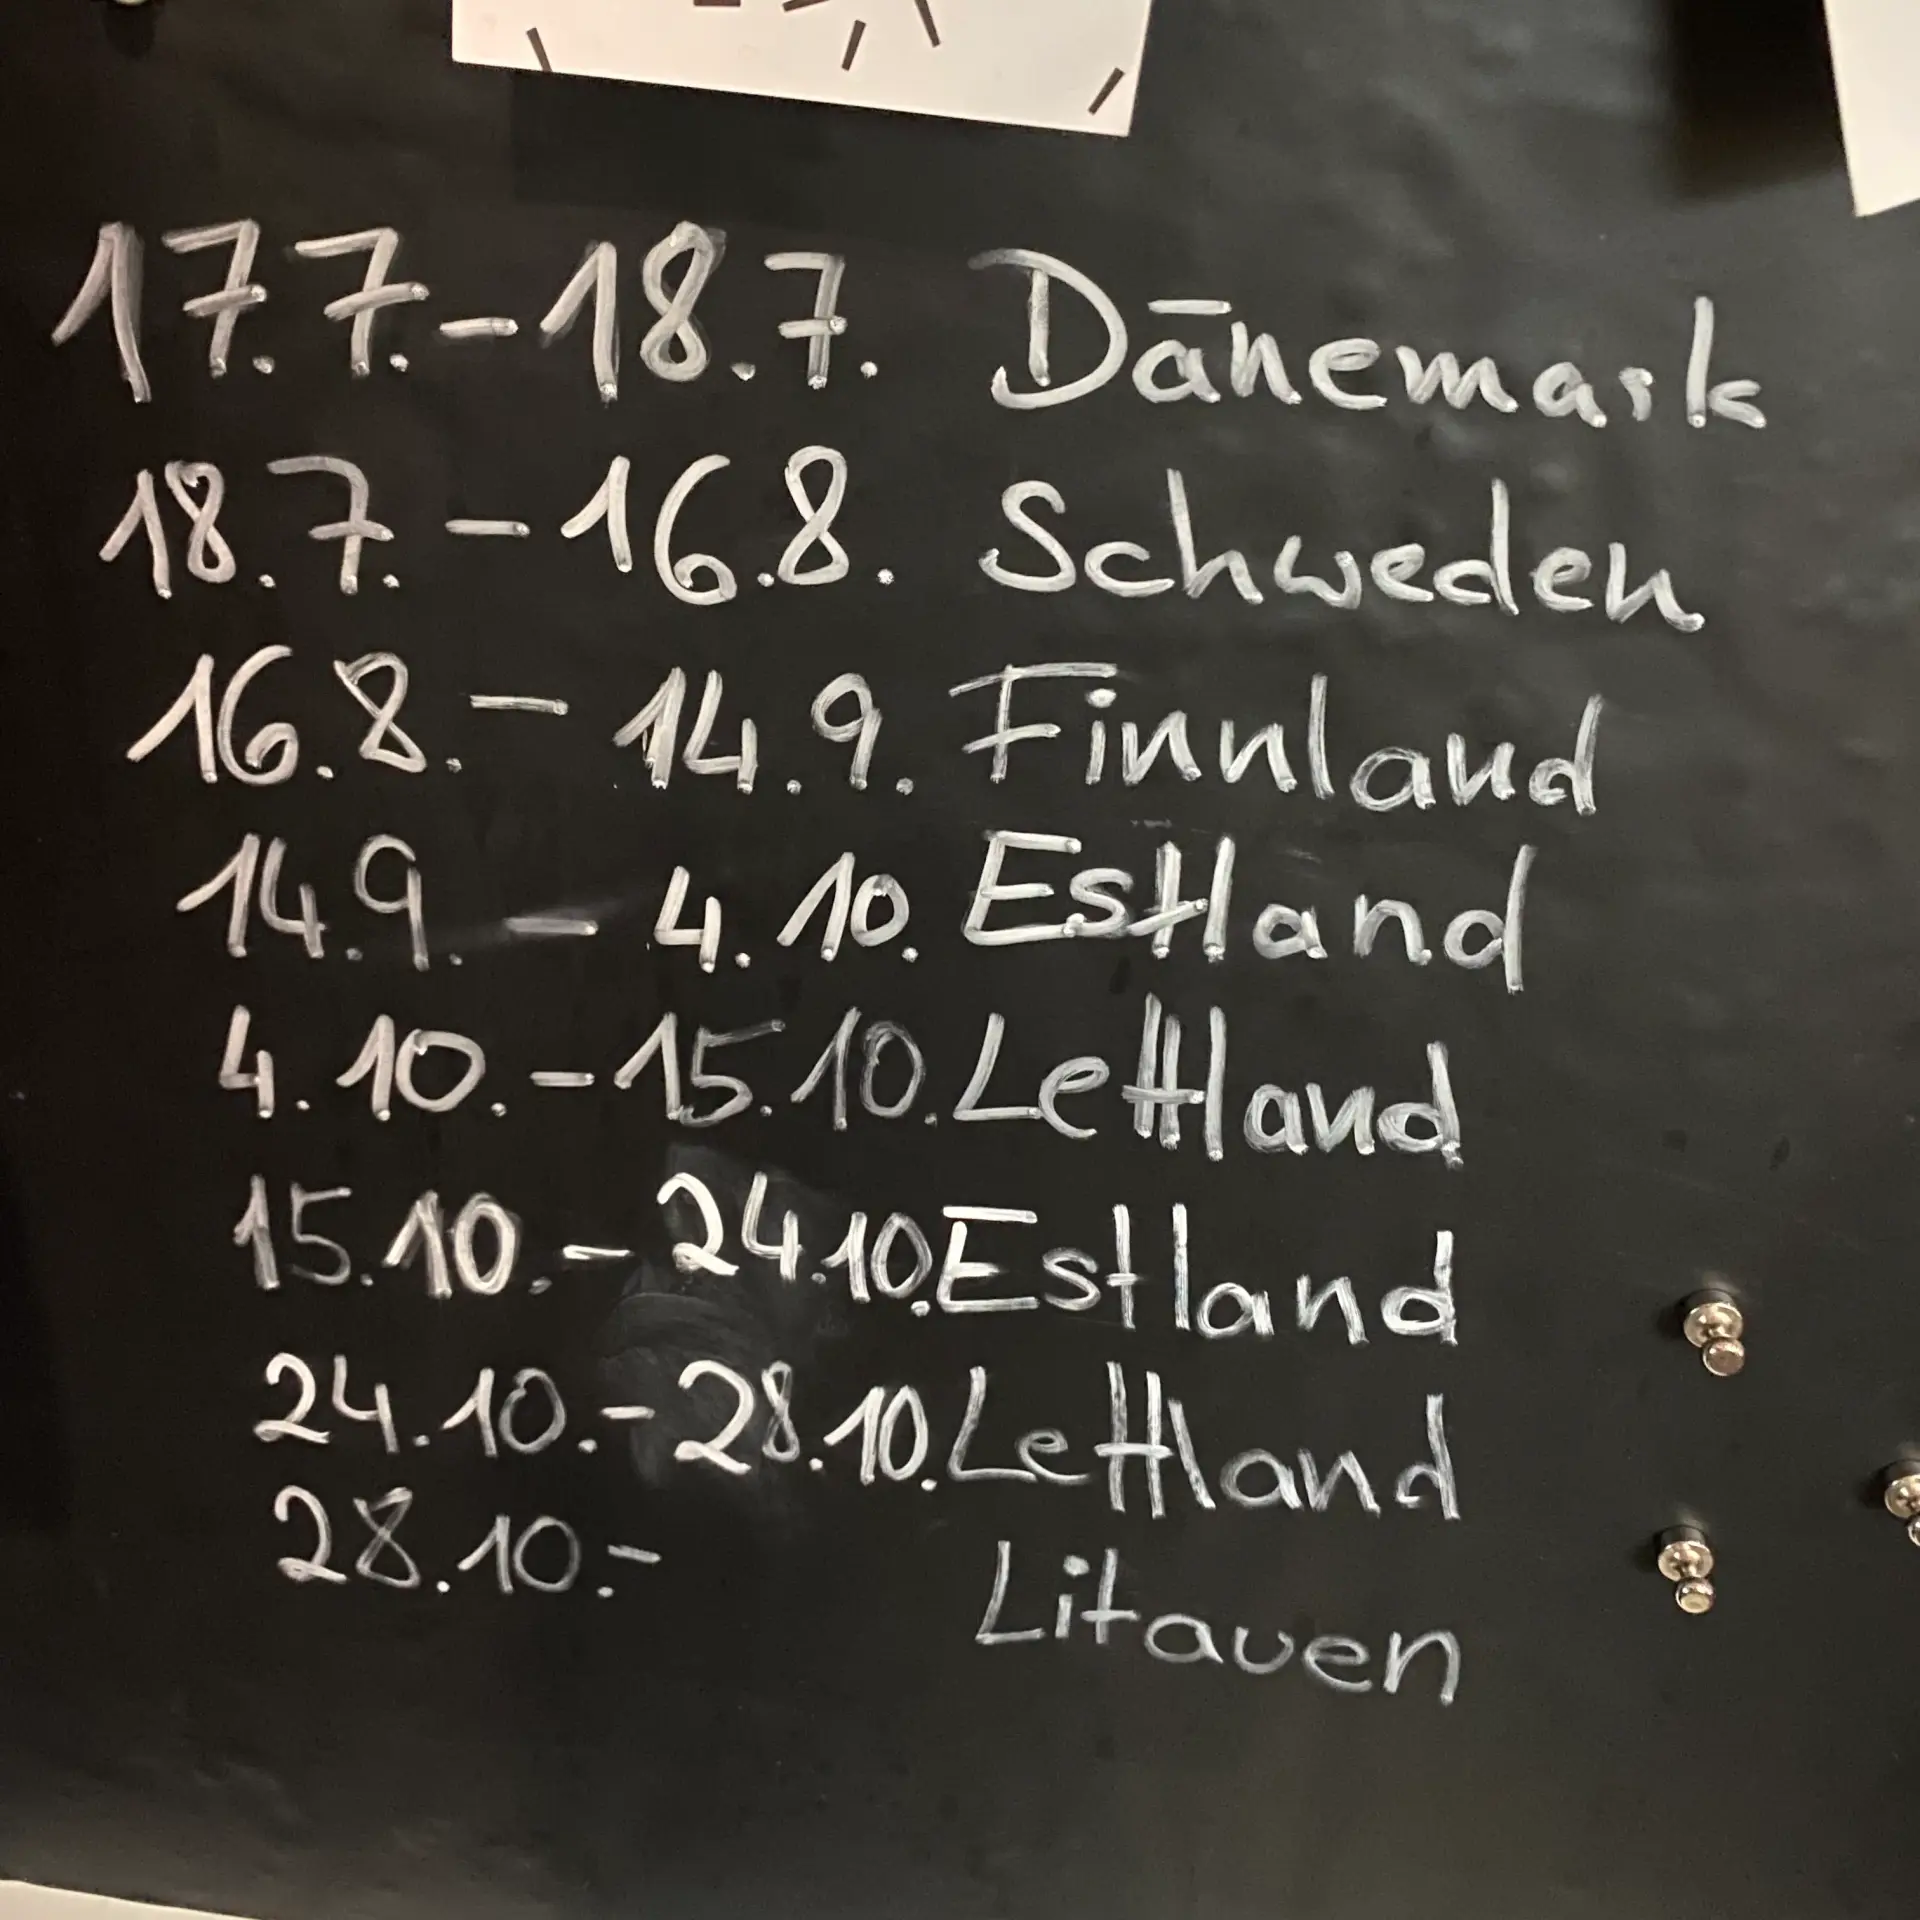 17.7.-18.7. Dänemark
18.7.-16.8. Schweden
16.8.-14.9. Finnland
14.9.-4.10. Estland
4.10.-15.10. Lettland
15.10.-24.10. Estland
24.10.-28.10. Lettland
28.10.- Litauen